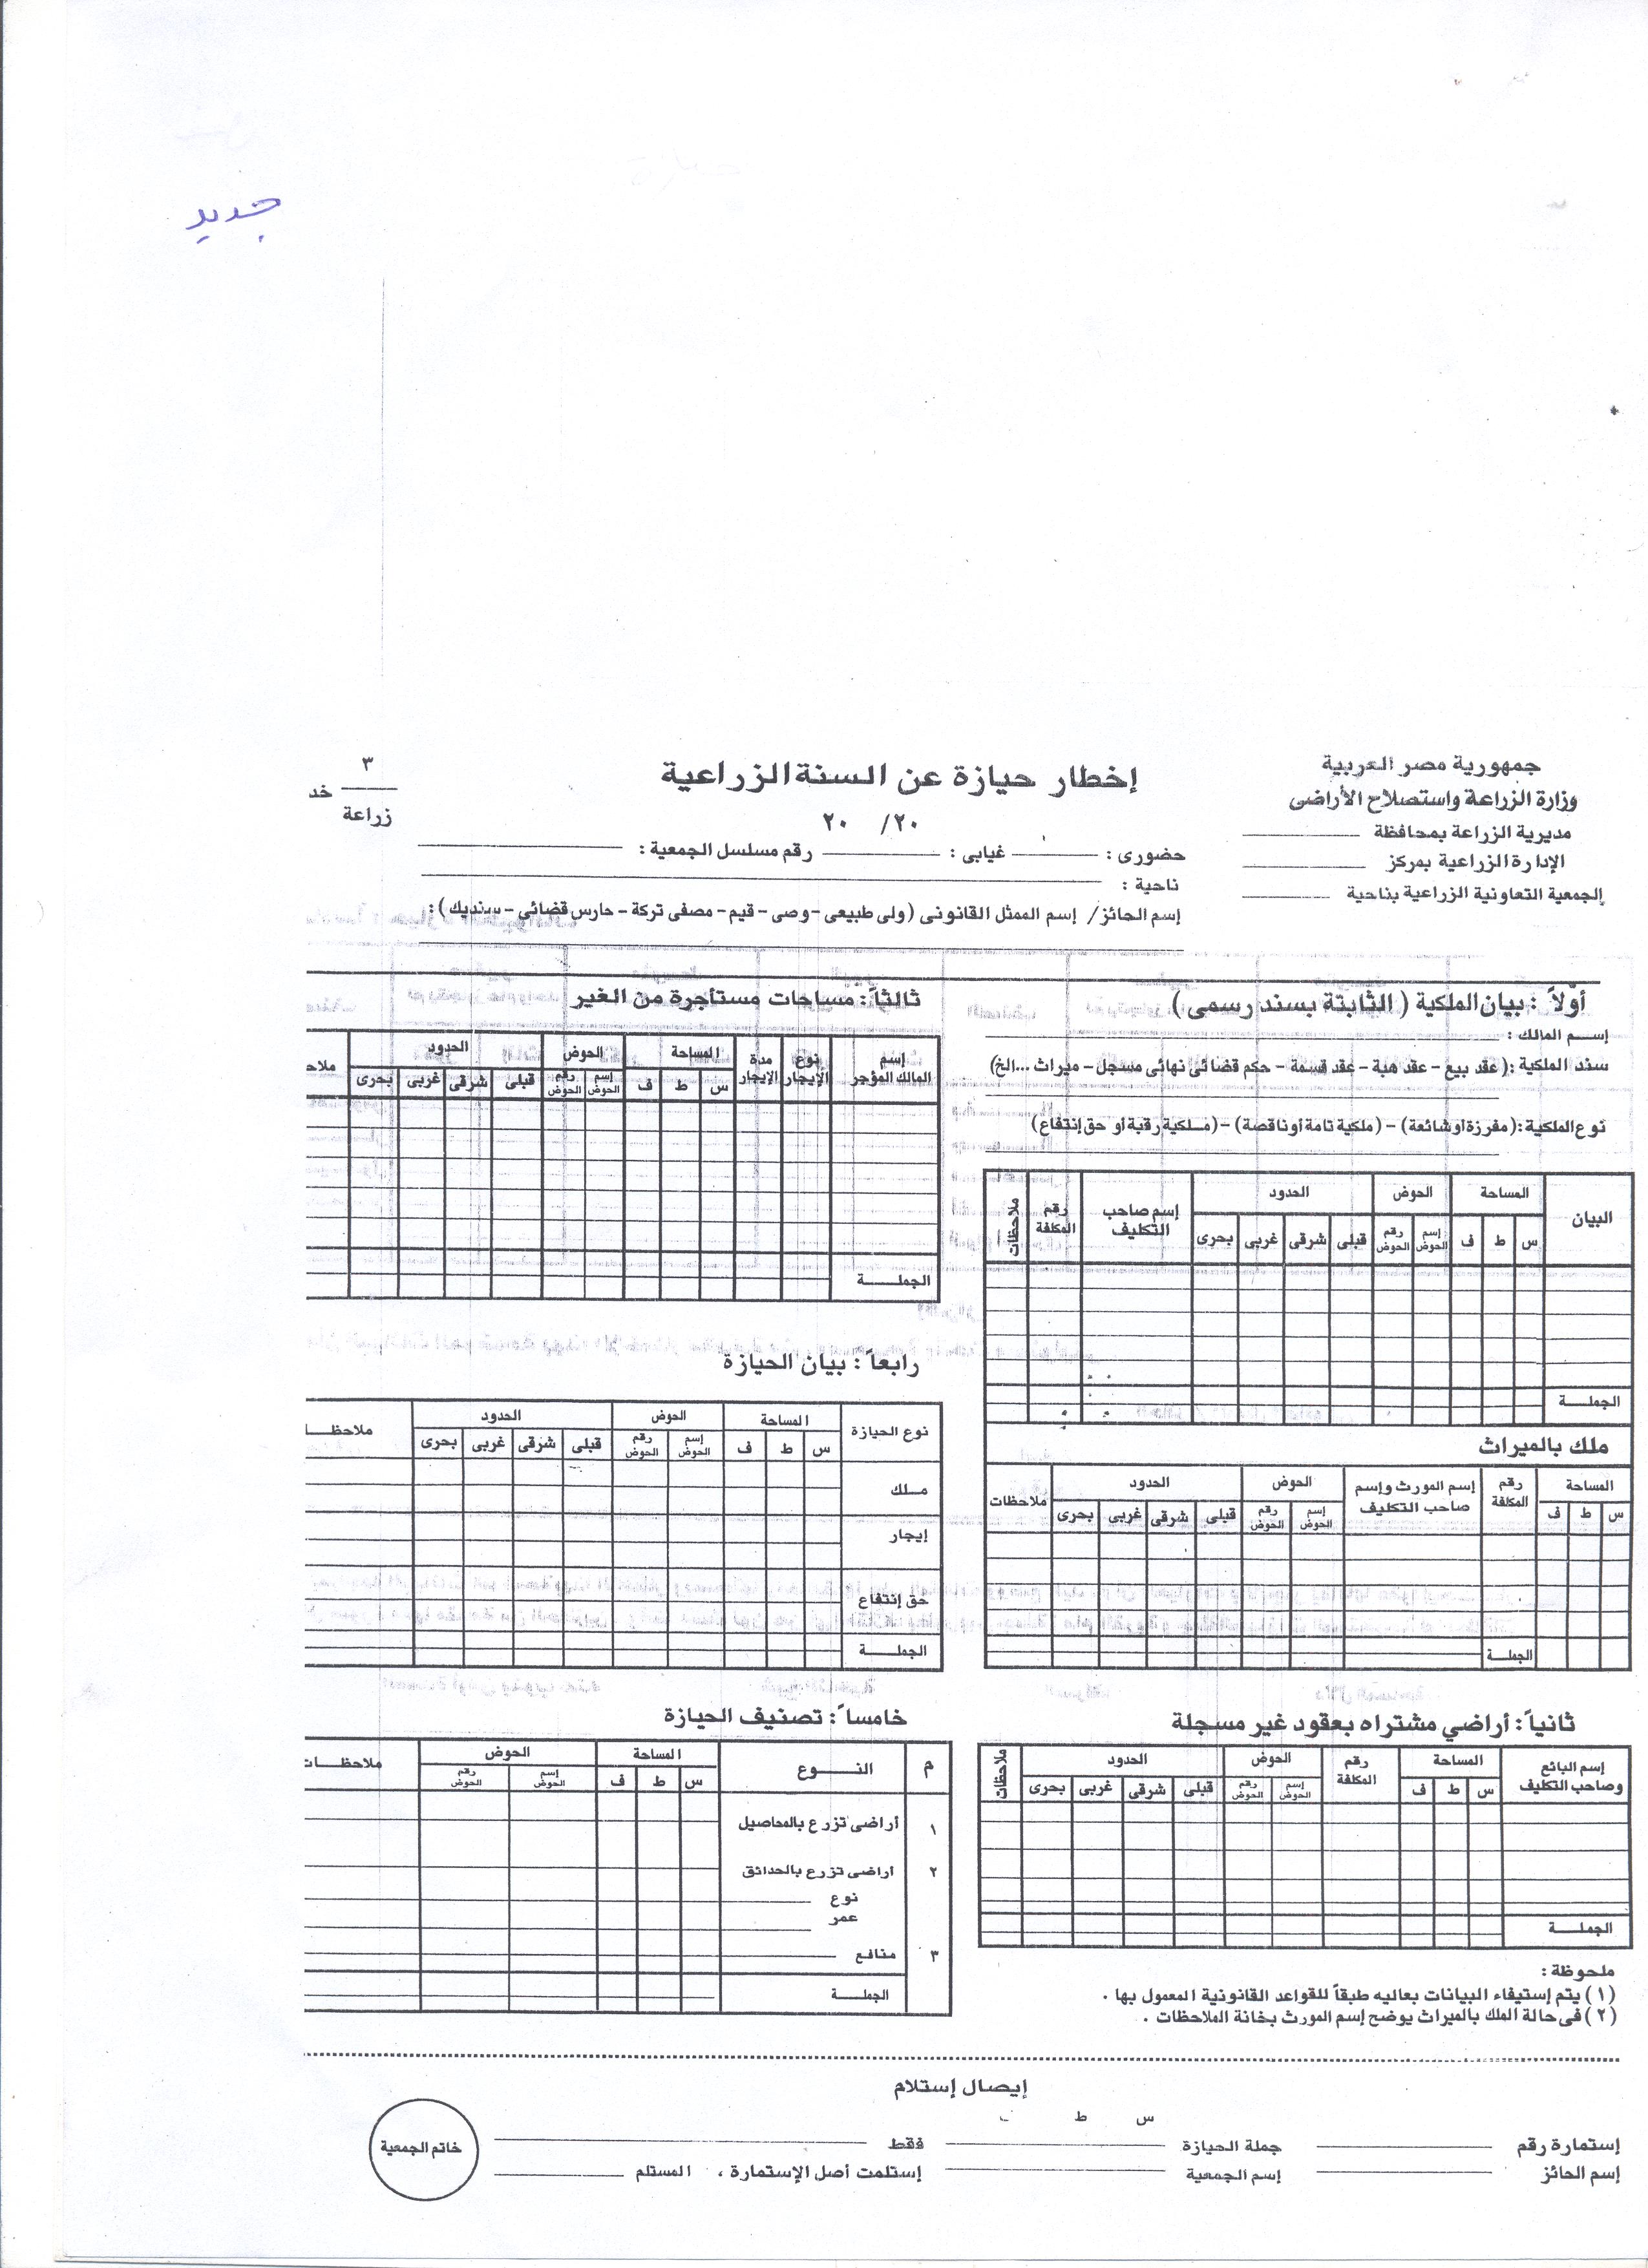 جديد
جمهورية مصر العربية
وزارة الزراعة واستصلاح الأراضى
مديرية الزراعة بمحافظة
الإدارة الزراعية بمركز
الجمعية التعاونية الزراعية بناحية
إخطار حيازة عن السنة الزراعية
٢٠ / ٢٠
٣
خد
زراعة
حضورى : غيابى : رقم مسلسل الجمعية :
ناحية :
إسم الحائز / إسم الممثل القانونى ( ولى طبيعى - وصى - قيم - مصفى تركة - حارس قضائى - سنديك ) :
أولاً : بيان الملكية ( الثابتة بسند رسمى )
إسم المالك :
سند الملكية : ( عقد بيع - عقد هبة - عقد قسمة - حكم قضائى نهائى مسجل - ميراث ... الخ )
نوع الملكية : ( مفرزة أو شائعة ) - ( ملكية تامة أو ناقصة ) - ( ملكية رقبة أو حق إنتفاع )
البيان المساحة الحوض الحدود إسم صاحب التكليف رقم المكلفة ملاحظات
س ط ف إسم الحوض رقم الحوض قبلى شرقى غربى بحرى
الجملة
ملك بالميراث
المساحة رقم المكلفة إسم المورث وإسم صاحب التكليف الحوض الحدود ملاحظات
س ط ف إسم الحوض رقم الحوض قبلى شرقى غربى بحرى
الجملة
ثانياً : أراضي مشتراه بعقود غير مسجلة
إسم البائع وصاحب التكليف المساحة رقم المكلفة الحوض الحدود ملاحظات
س ط ف إسم الحوض رقم الحوض قبلى شرقى غربى بحرى
الجملة
ملحوظة :
( ١ ) يتم إستيفاء البيانات بعاليه طبقاً للقواعد القانونية المعمول بها .
( ٢ ) فى حالة الملك بالميراث يوضح إسم المورث بخانة الملاحظات .
ثالثاً : مساحات مستأجرة من الغير
إسم المالك المؤجر نوع الإيجار مدة الإيجار المساحة الحوض الحدود ملاح
س ط ف إسم الحوض رقم الحوض قبلى شرقى غربى بحرى
الجملة
رابعاً : بيان الحيازة
نوع الحيازة المساحة الحوض الحدود ملاحظا
س ط ف إسم الحوض رقم الحوض قبلى شرقى غربى بحرى
ملك
إيجار
حق إنتفاع
الجملة
خامساً : تصنيف الحيازة
م النوع المساحة الحوض ملاحظات
س ط ف إسم الحوض رقم الحوض
١ أراضى تزرع بالمحاصيل
٢ أراضى تزرع بالحدائق
نوع
عمر
٣ منافع
الجملة
إيصال إستلام
س ط
إستمارة رقم جملة الحيازة فقط
إسم الحائز إسم الجمعية إستلمت أصل الإستمارة ، المستلم
خاتم الجمعية